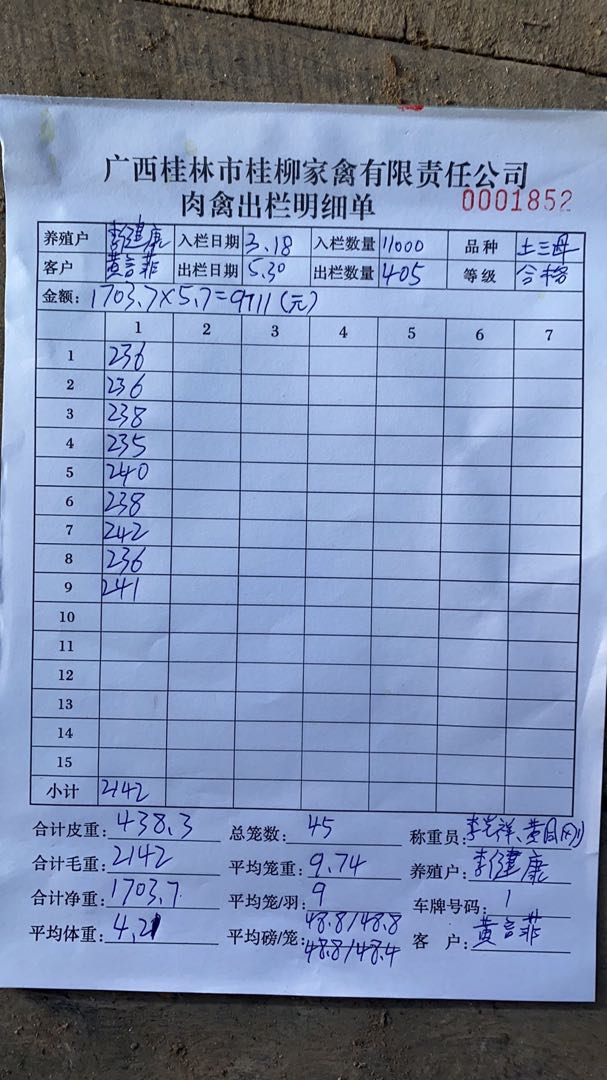 广西桂林市桂柳家禽有限责任公司
肉禽出栏明细单 0001852
养殖户 李健康 入栏日期 3.18 入栏数量 11000 品种 土三母
客户 黄言菲 出栏日期 5.30 出栏数量 405 等级 合格
金额: 1703.7×5.7=9711(元)
1 2 3 4 5 6 7
1 236
2 236
3 238
4 235
5 240
6 238
7 242
8 236
9 241
10
11
12
13
14
15
小计 2142
合计皮重: 438.3 总笼数: 45 称重员: 李
合计毛重: 2142 平均笼重: 9.74 养殖户: 李健康
合计净重: 1703.7 平均笼/羽: 9 车牌号码: 1
平均体重: 4.21 平均磅/笼: 48.8/48.8 客 户: 黄言菲
48.8/48.4